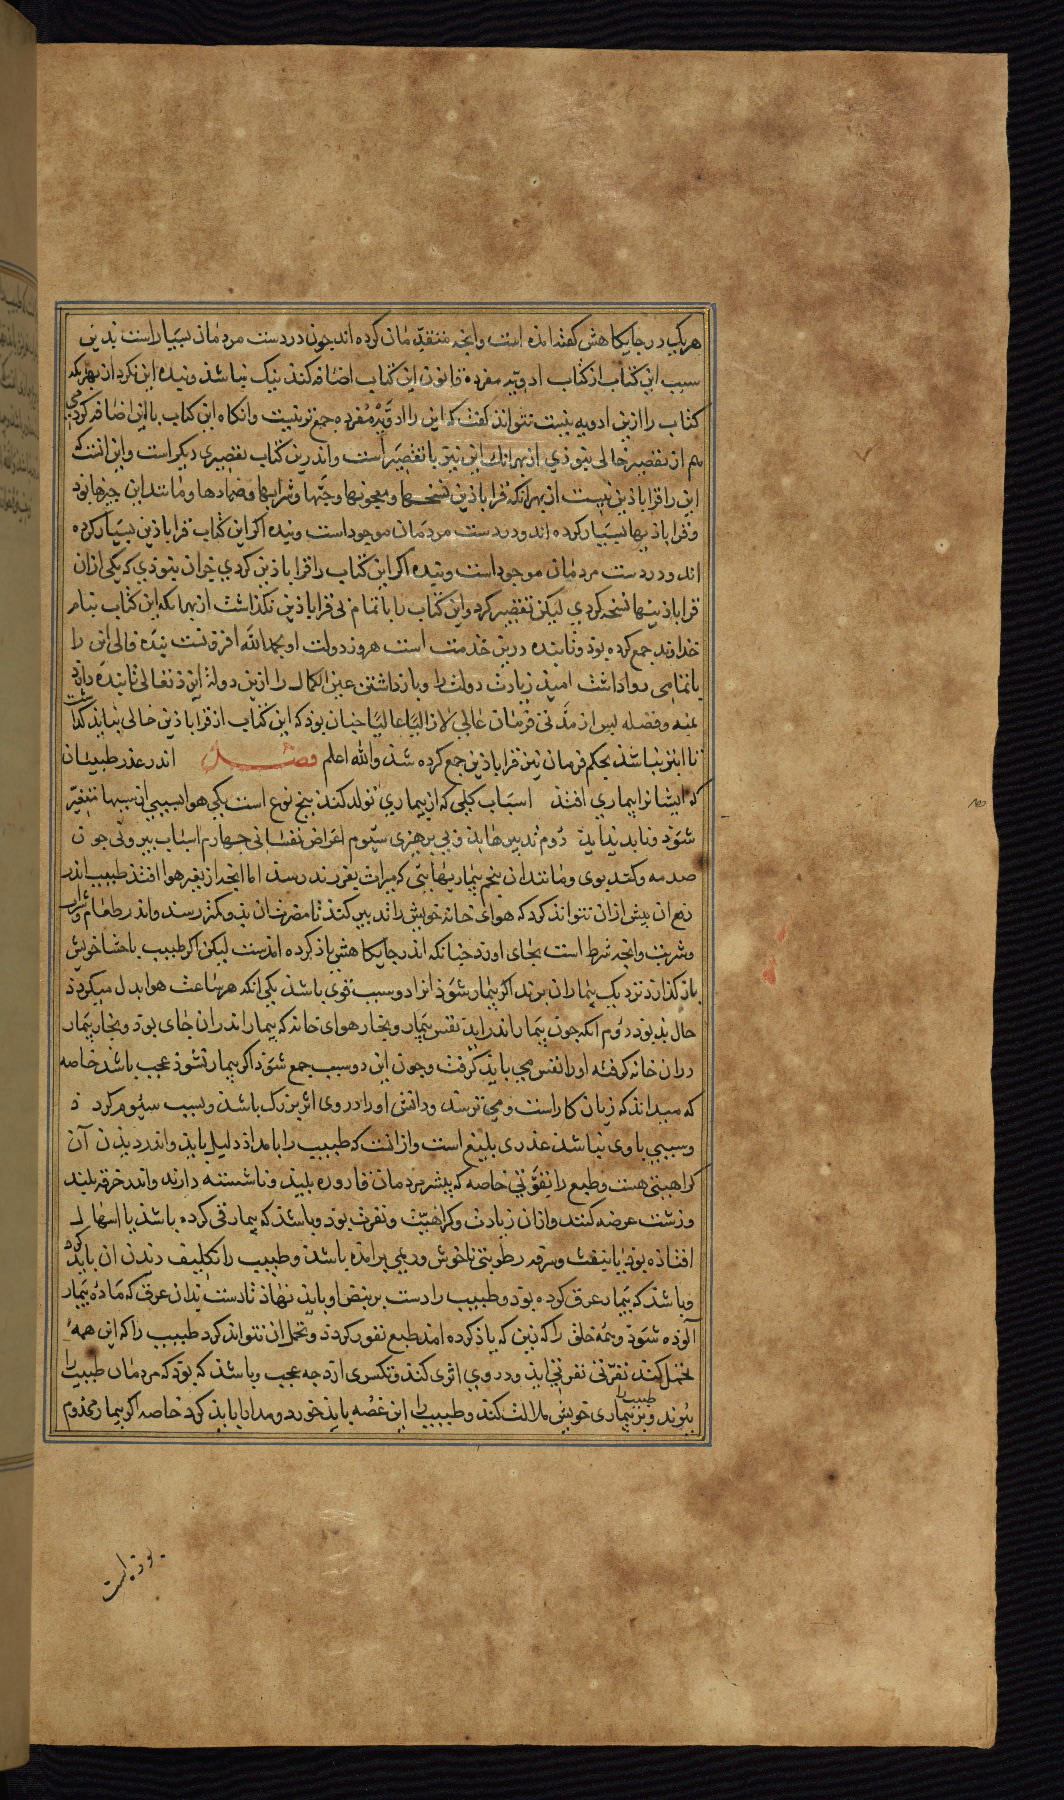 هریک در جایکاهش کفته امذه است وانچه متقدّمان کرده اند چون در دست مردمان بسیار است بدین
سبب این کتاب از کتاب ادویهٔ مفرده قانون این کتاب اضافه کنذ نیک نباشذ وبنده این نکرد از بهر آنکه
کتاب را ازین ادویه بیست نتواند کفت که این را ادویهٔ مفرده جمع ترتیب وانکاه این کتاب با این اضافه کردمی
هم از تقصیر خالی نبوذی از بهر انک این نیز با تقصیر است واندرین کتاب تقصیری دیکر است واین انست که
این را قراباذین نیست از بهر انکه قراباذین نسخها ومعجونها وحبّها وشرابها وضمادها ومانند این چیزها بوذ
وقراباذینها بسیار کرده اند ودر دست مردمان موجود است وبنده اکر این کتاب قراباذین بسیار کرده
اند ودر دست مردمان موجود است وبنده اکر این کتاب را قراباذین کردی جز ان نبوذی که یکی از ان
قراباذینها نسخه کردی لیکن تقصیر کرد واین کتاب را با تمام بی قراباذین نکذاشت از بهر انکه این کتاب بنام
خداوند جمع کرده بوذ وتا بنده درین خذمت است هر روز دولت او بحمد الله افزونست بنده فالی این را
با تمامی روا داشت امیذ زیادت دولت را وبازداشتن عین الکمال را ازین دولة ایزذ تعالی تابنده دارد
بمنه وفضله پس از مدّتی فرمان عالی لازال عالیا چنان بوذ که این کتاب از قراباذین خالی نبایذ کذاشت
تا ابتر نباشذ بحکم فرمان نیز قراباذین جمع کرده شذ والله اعلم فصل اندر عذر طبیبان
که ایشانرا بیماری افتذ اسباب کلی که از بیماری تولد کند پنج نوع است یکی هوا بسببی از سببها متغیّر
شوذ وبا بدید ایذ دوم تدبیرهای بذ وبی پرهیزی سیّوم اعراض نفسانی چهارم اسباب بیرونی چون
صدمه وکند بوی ومانند ان پنجم بیماریهایی که میراث بفرزند رسذ اما انچه از تغیر هوا افتذ طبیب اندر
تدبیر ان بیش ازان نتواند کرد که هوای خانه خویش را تدبیر کنذ تا مضرت ان بذو کمتر رسذ واندر طعام وشراب
وشربت وانچه شرط است بجای اورد چنانکه اندر جایکاهش یاذ کرده امذست لیکن اکر طبیب با حشا خویش
باز کذارد نزدیک بیماران برند اکر بیمار شوذ انرا دو سبب قوی باشذ یکی انکه هر ساعت هوا بدل میکرد وز
حال بذ بوذ دوم انکه چون بیمار اندر اید نفس بیمار وبخار هوای خانه که بیمار اندران جای بوذ وبخار بیمار
دران خانه کرفته اورا نفس می بایذ کرفت وچون این دو سبب جمع شوذ اکر بیمار نشوذ عجب باشذ خاصه
که میداند که زیان کار است ومی ترسذ ودانش اورا در وی اثر بزرک باشذ وسبب سیّوم کرد ذ
وسببی باوی نباشذ عذری بلیغ است وازانست که طبیب را بامداذ دلیل بایذ واندر دیذن آن
کراهیتی هست وطبع را نفرتی خاصه که بیشتر مردمان قاروره بلیذ وناشسته دارند واندر خرقه بلیذ
وزشت عرضه کنند وازان زیادت وکراهیّت ونفرت بوذ وباشذ که بیمار قی کرده باشذ یا اسهال
افتاذه بوذ یا بنفث وسرفه رطوبتی ناخوش وریمی برامذه باشذ وطبیب را تکلیف دیذن ان بایذ کرد
وباشذ که بیمار عرق کرده بوذ وطبیب را دست بر نبض او بایذ نهاذ تا دست بدان عرق که مادهٔ بیمار
آلوذه شوذ وهمه خلق را که بین که یاذ کرده امذ طبع نفور کردذ وتحمل ان نتوانذ کرد طبیب را که این همه
تحمل کنذ نفرتی نفرتی ایذ ودر وی اثری کنذ وتکسری ازو چه عجب وباشذ که بوذ که مردمان طبیب را
ببرند وبر بیماری خویش ملالت کنذ وطبیب را این غصه بایذ خورد ومدارا بایذ کرد خاصه اکر بیمار مخدوم
طبیب را
بوذه است